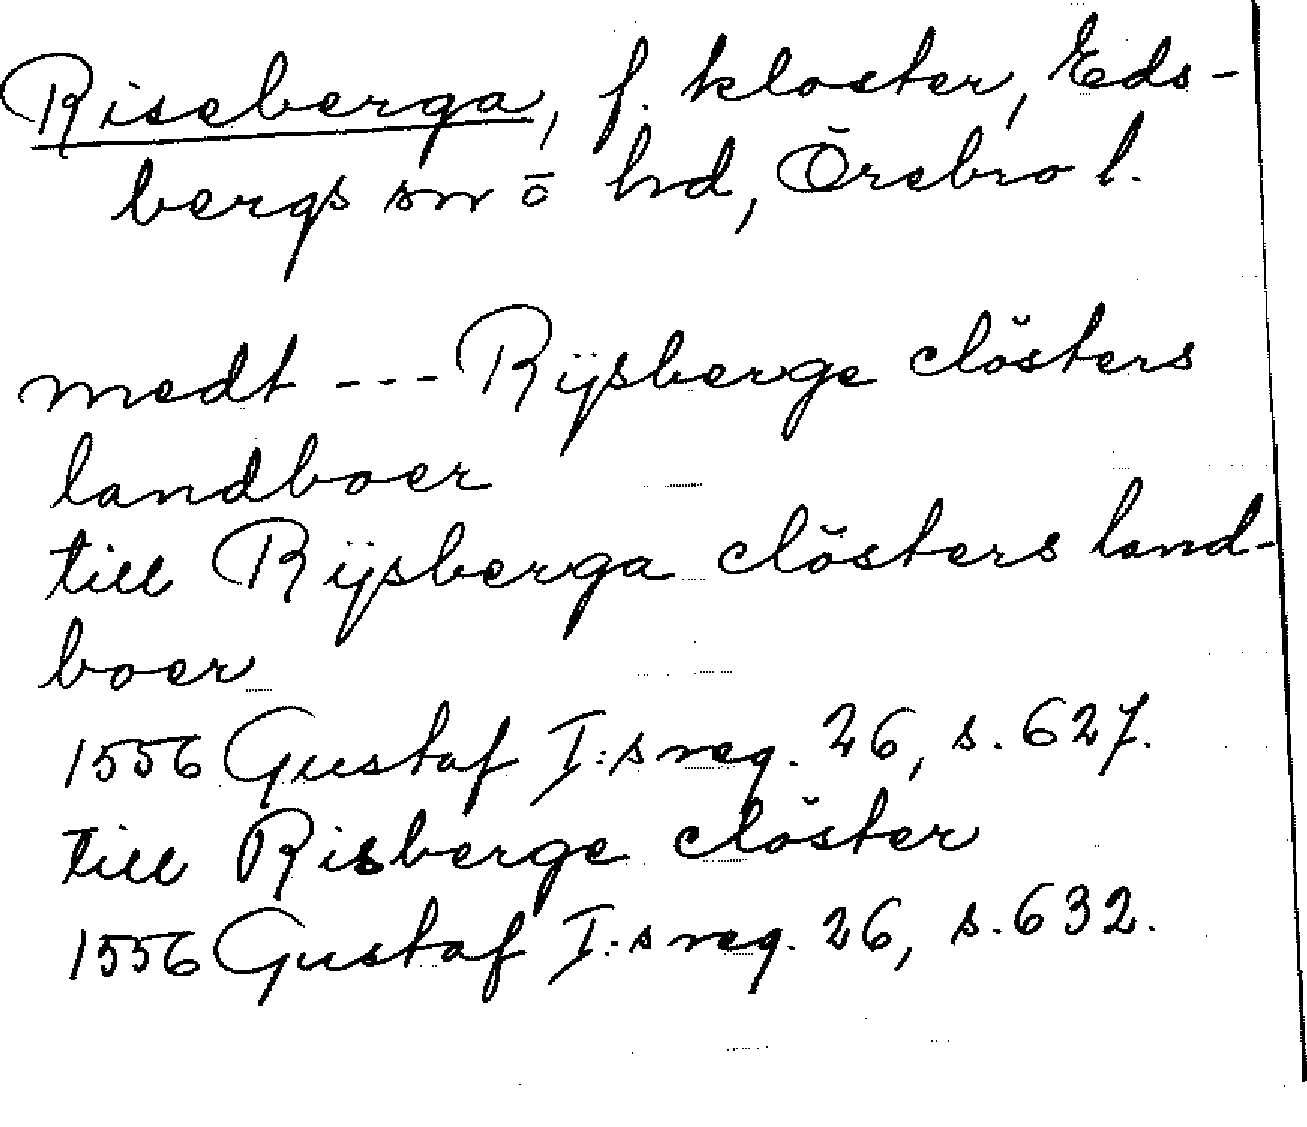 Riseberga, f. kloster, Eds-
bergs sn o hd, Örebro l.
medt --- Rijsberge clösters
landboer
till Rijsberga clösters land-
boer
1556 Gustaf I:s reg. 26, s. 627.
till Risberge clöster
1556 Gustaf I:s reg. 26, s. 632.